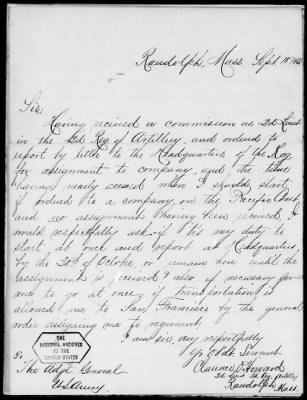 Randolph, Mass. Sept. 18th
Sir
Having recieved a commission as 2d Lieut
in the 2d Reg of Artillery and ordered to
report by letter to the Headquarters of the Reg
for assignment to company, and the time
having nearly when I should start
if ordered to a company on the Pacific Coast
and no assignment having been recieved I
would respectfully ask if it's my duty to
start at once and report at Headquarters
by the 20th of October, or remain here until the
assignment is recieved I also if necessary for
me to go at once if transportation is
allowed me to San Francisco by the general
order assigning me to regiment,
I am sir, very respectfully
Yr Obdt Servant
Clarence O. Howard
2d Lieut 2d Reg Artillery
Randolph
Mass
To
The Adjt General
U.S. Army.
THE
NATIONAL ARCHIVES
OF THE
UNITED STATES